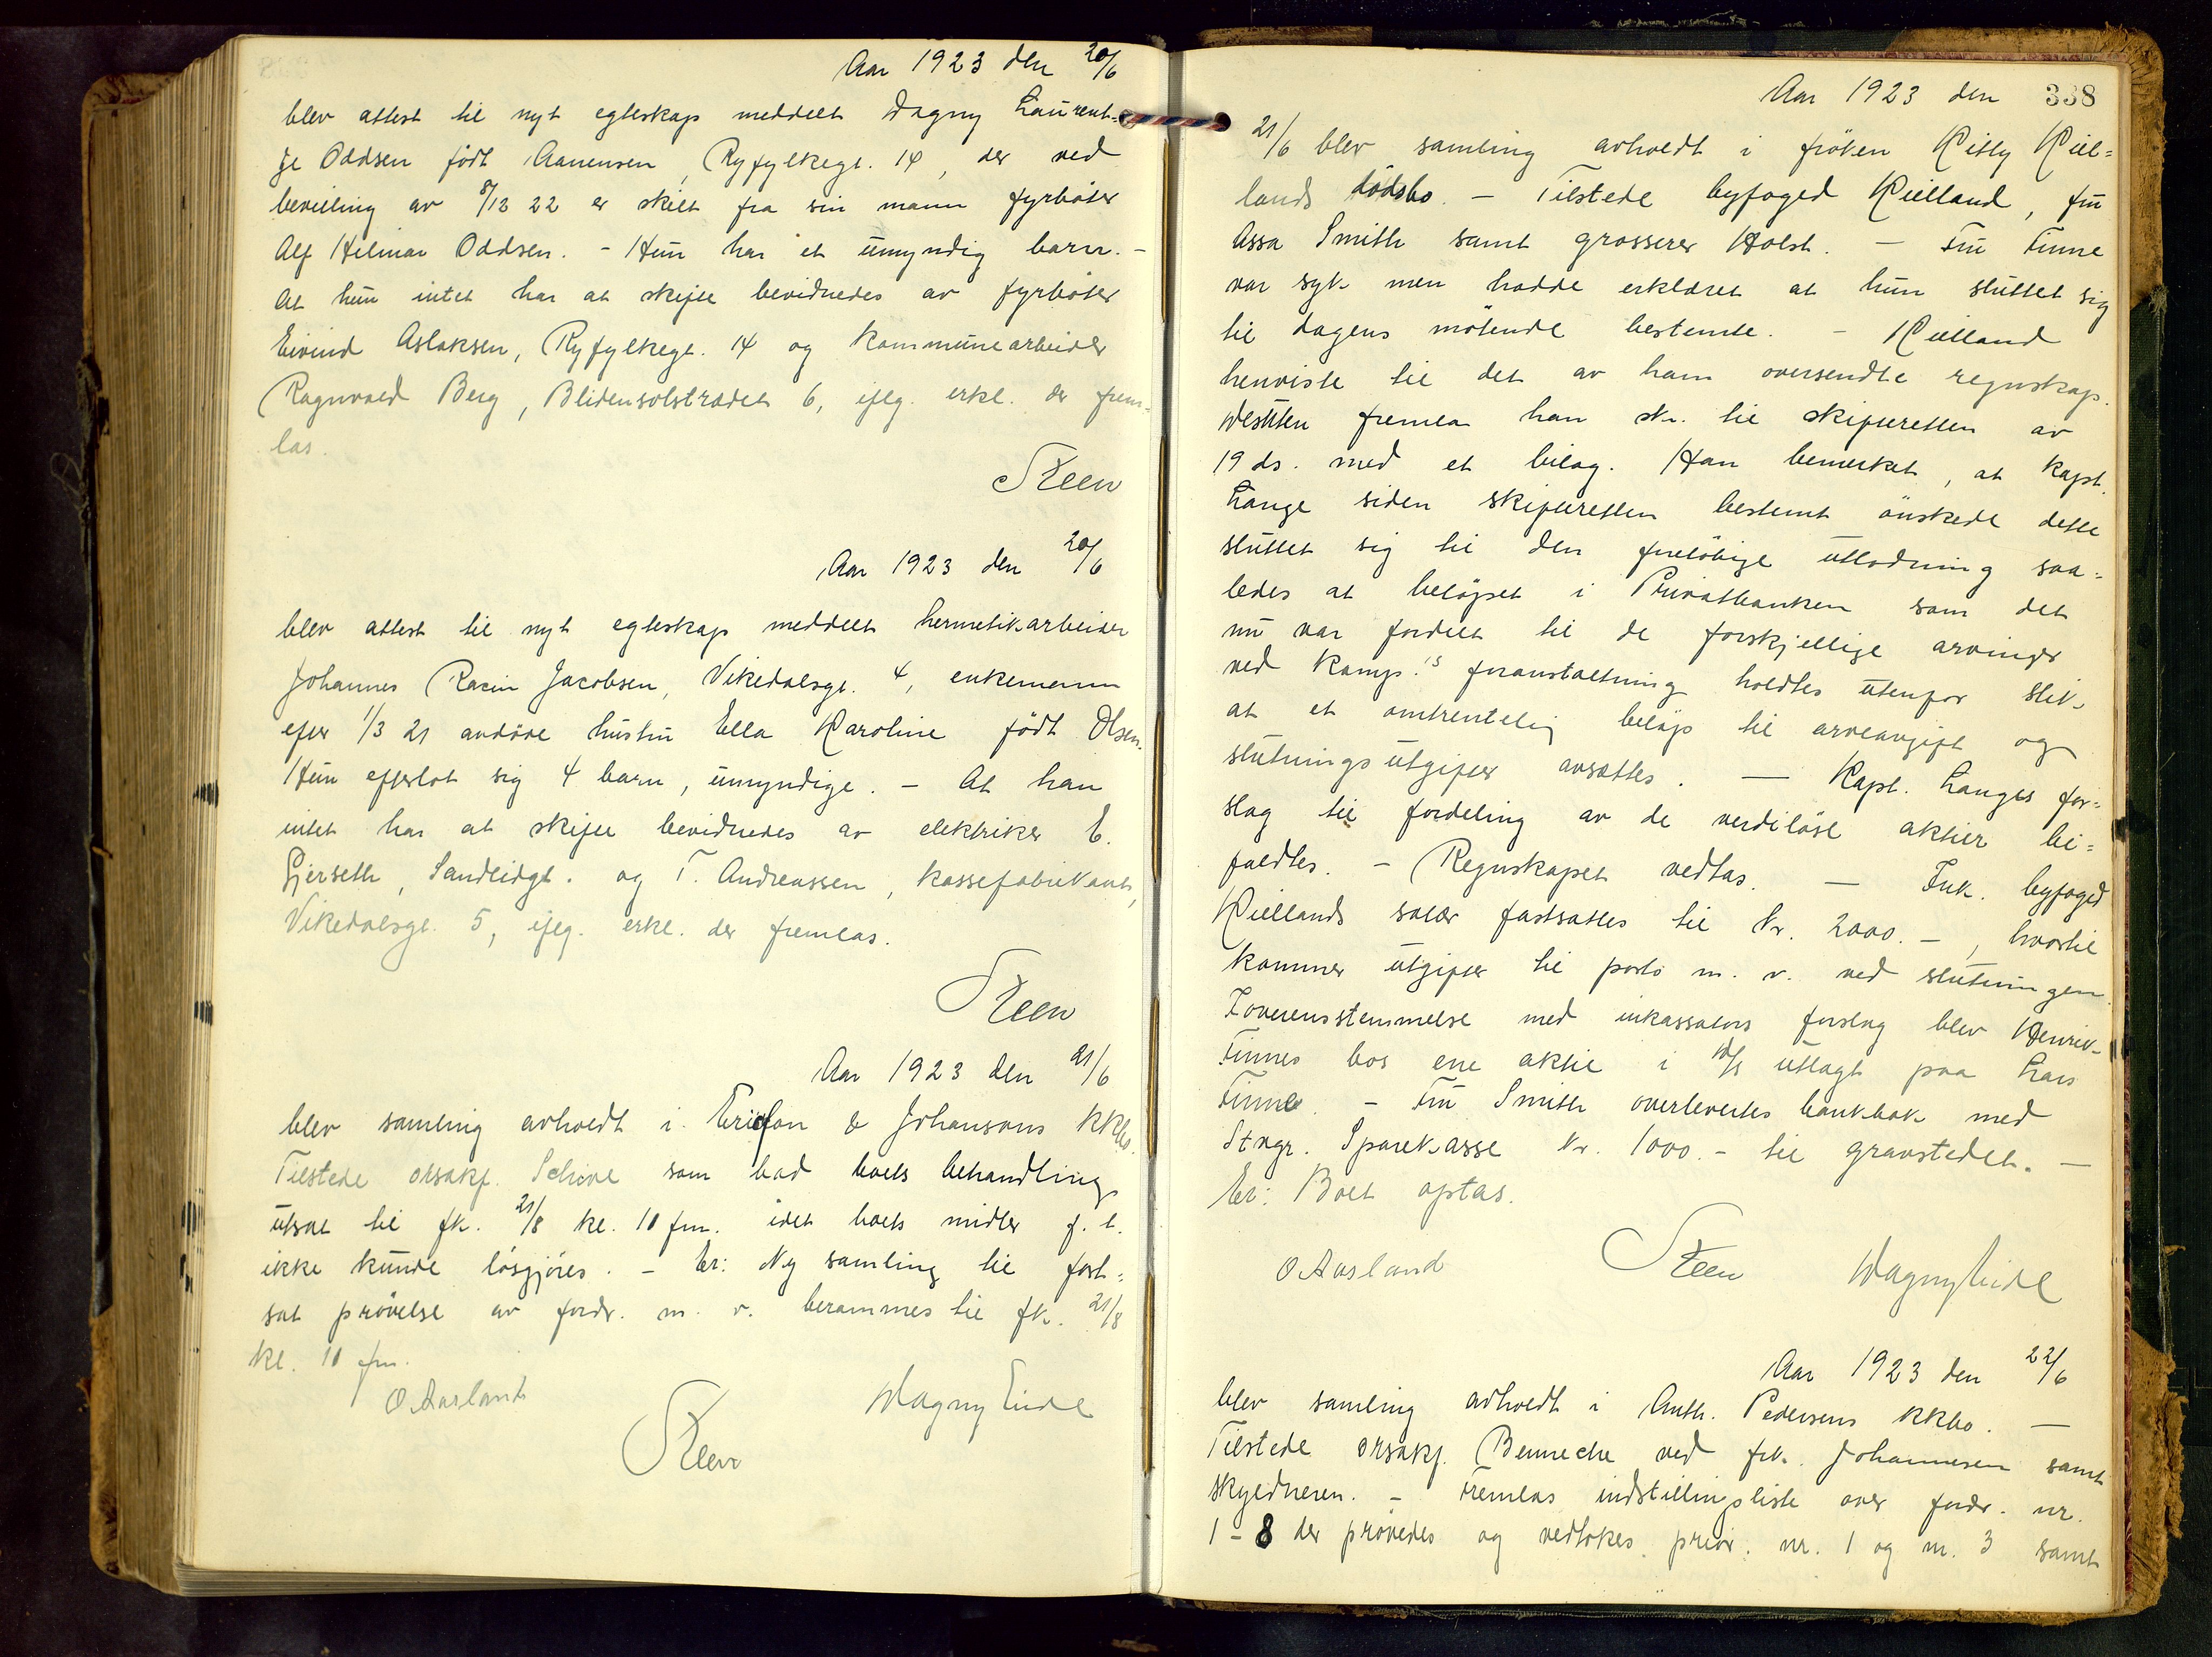 Aar 1923 den 20/6
blev attest til nyt egteskap meddelt Dagny Laurent=
ze Oddsen født Aanensen, Ryfylkegt. 14, der ved
bevilling av 8/12 22 er skilt fra sin mann fyrbøter
Alf Hilmar Oddsen. - Hun har et umyndig barn. -
At hun intet har at skifte bevidnedes av fyrbøter
Eivind Aslaksen, Ryfylkegt. 14 og kommunearbeider
Ragnvald Berg, Blidensolstrædet 6, iflg. erkl. der frem=
las.
Steen
Aar 1923 den 20/6
blev attest til nyt egteskap meddelt hermetikarbeider
Johannes Racin Jacobsen, Vikedalsgt. 4, enkemann
efter 1/3 21 avdøde hustru Ella Karoline født Olsen.
Hun efterlot sig 4 barn, umyndige. - At han
intet har at skifte bevidnedes av elektriker E.
Gjerseth, Sandeidgt. og T. Andreassen, kassefabrikant,
Vikedalsgt. 5, iflg. erkl. der fremlas.
Steen
Aar 1923 den 21/6
blev samling avholdt i Ericson & Johansons kkbo.
Tilstede orsakf. Schive som bad boets behandling
utsat til fk. 21/8 kl. 10 fm. idet boets midler f. t.
ikke kunde løsgjøres. - Er: Ny samling til fort=
sat prøvelse av fordr. m. v. berammes til fk. 21/8
kl. 10 fm.
O Aasland
Steen
Magny Eide
338
Aar 1923 den
21/6 blev samling avholdt i frøken Kitty Kiel=
lands dødsbo. - Tilstede byfoged Kielland, fru
Assa Smith samt grosserer Holst. - Fru Finne
var syk men hadde erklæret at hun sluttet sig
til dagens møtende bestemte. - Kielland
henviste til det av ham oversendte regnskap.
Desuten fremla han skr. til skifteretten av
19 ds. med et bilag. Han bemerket, at kapt.
Lange siden skifteretten bestemt ønskede dette
sluttet sig til den foreløbige utlodning saa=
ledes at beløpet i Privatbanken som det
nu var fordelt til de forskjellige arvinger
ved Kamps foranstaltning holdtes utenfor slik
at et omtrentelig beløp til arveavgift og
slutningsutgifter avsattes. — Kapt. Langes for=
slag til fordeling av de verdiløse aktier bi=
faldtes. - Regnskapet vedtas. — Ink. byfoged
Kiellands salær fastsattes til kr. 2000.-, hvortil
kommer utgifter til porto m. v. ved slutningen.
I overensstemmelse med inkassators forslag blev Henrik
Finnes bos ene aktie i D/S utlagt paa Lars
Finne. - Fru Smith overlevertes bankbok med
Stvgr. Sparekasse kr. 1000.- til gravstedet. —
Er: Boet optas.
O Aasland
Steen
Magny Eide
Aar 1923 den 22/6
blev samling avholdt i Anth. Pedersens kkbo. —
Tilstede orsakf. Benneche ved frk. Johannesen samt
skyldneren. - Fremlas indstillingsliste over fordr. nr.
1-8 der prøvedes og vedtokes prior. nr. 1 og nr. 3 samt